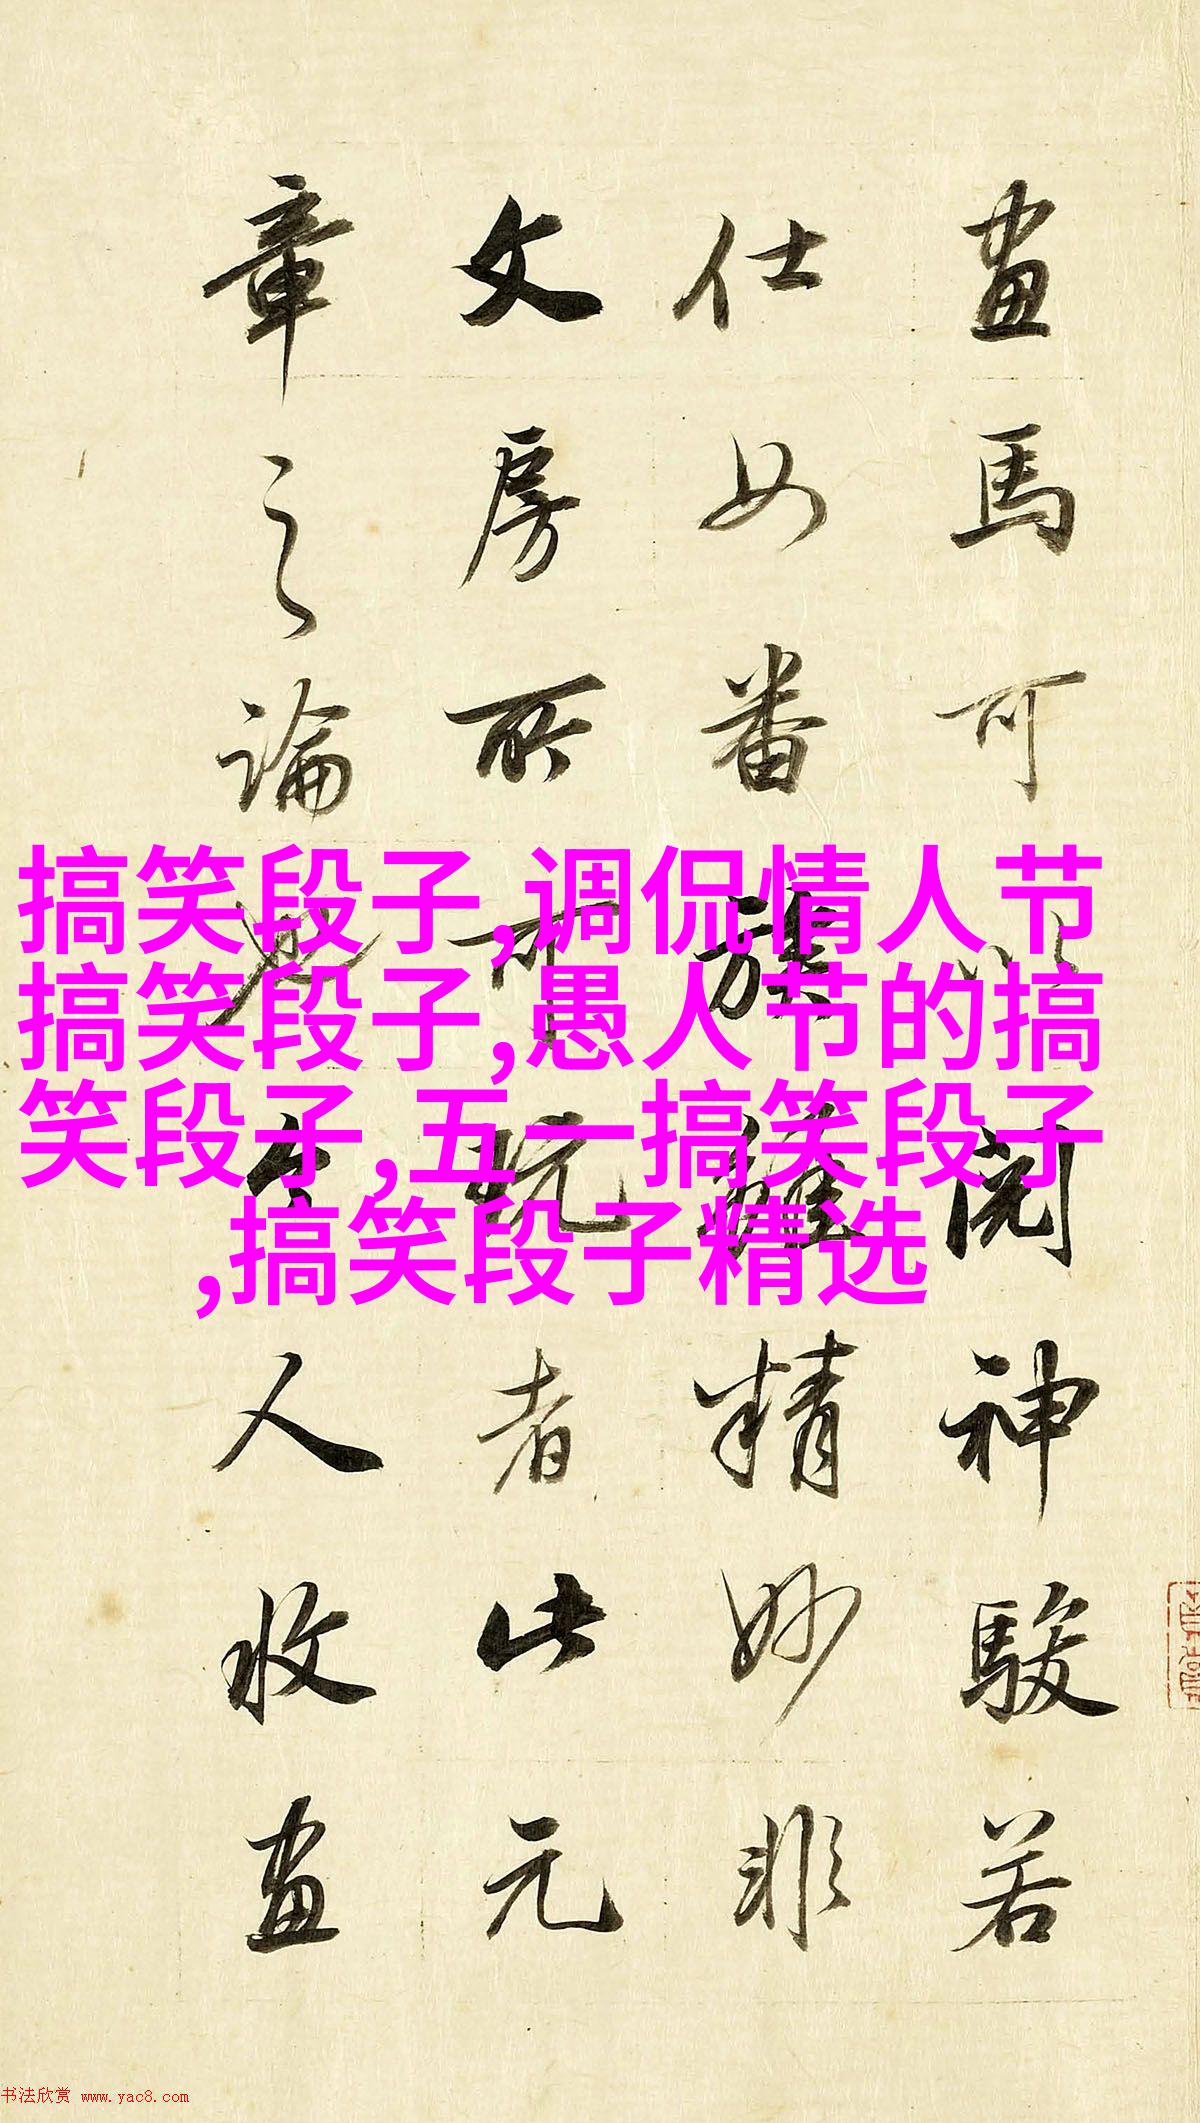 畫馬可以閱神駿若
仕女番族雖精妙非
文房所可玩者此元
章之論也今人收畫
搞笑段子,调侃情人节
搞笑段子,愚人节的搞
笑段子,五一搞笑段子
,搞笑段子精选
书法欣赏 www.yac8.com